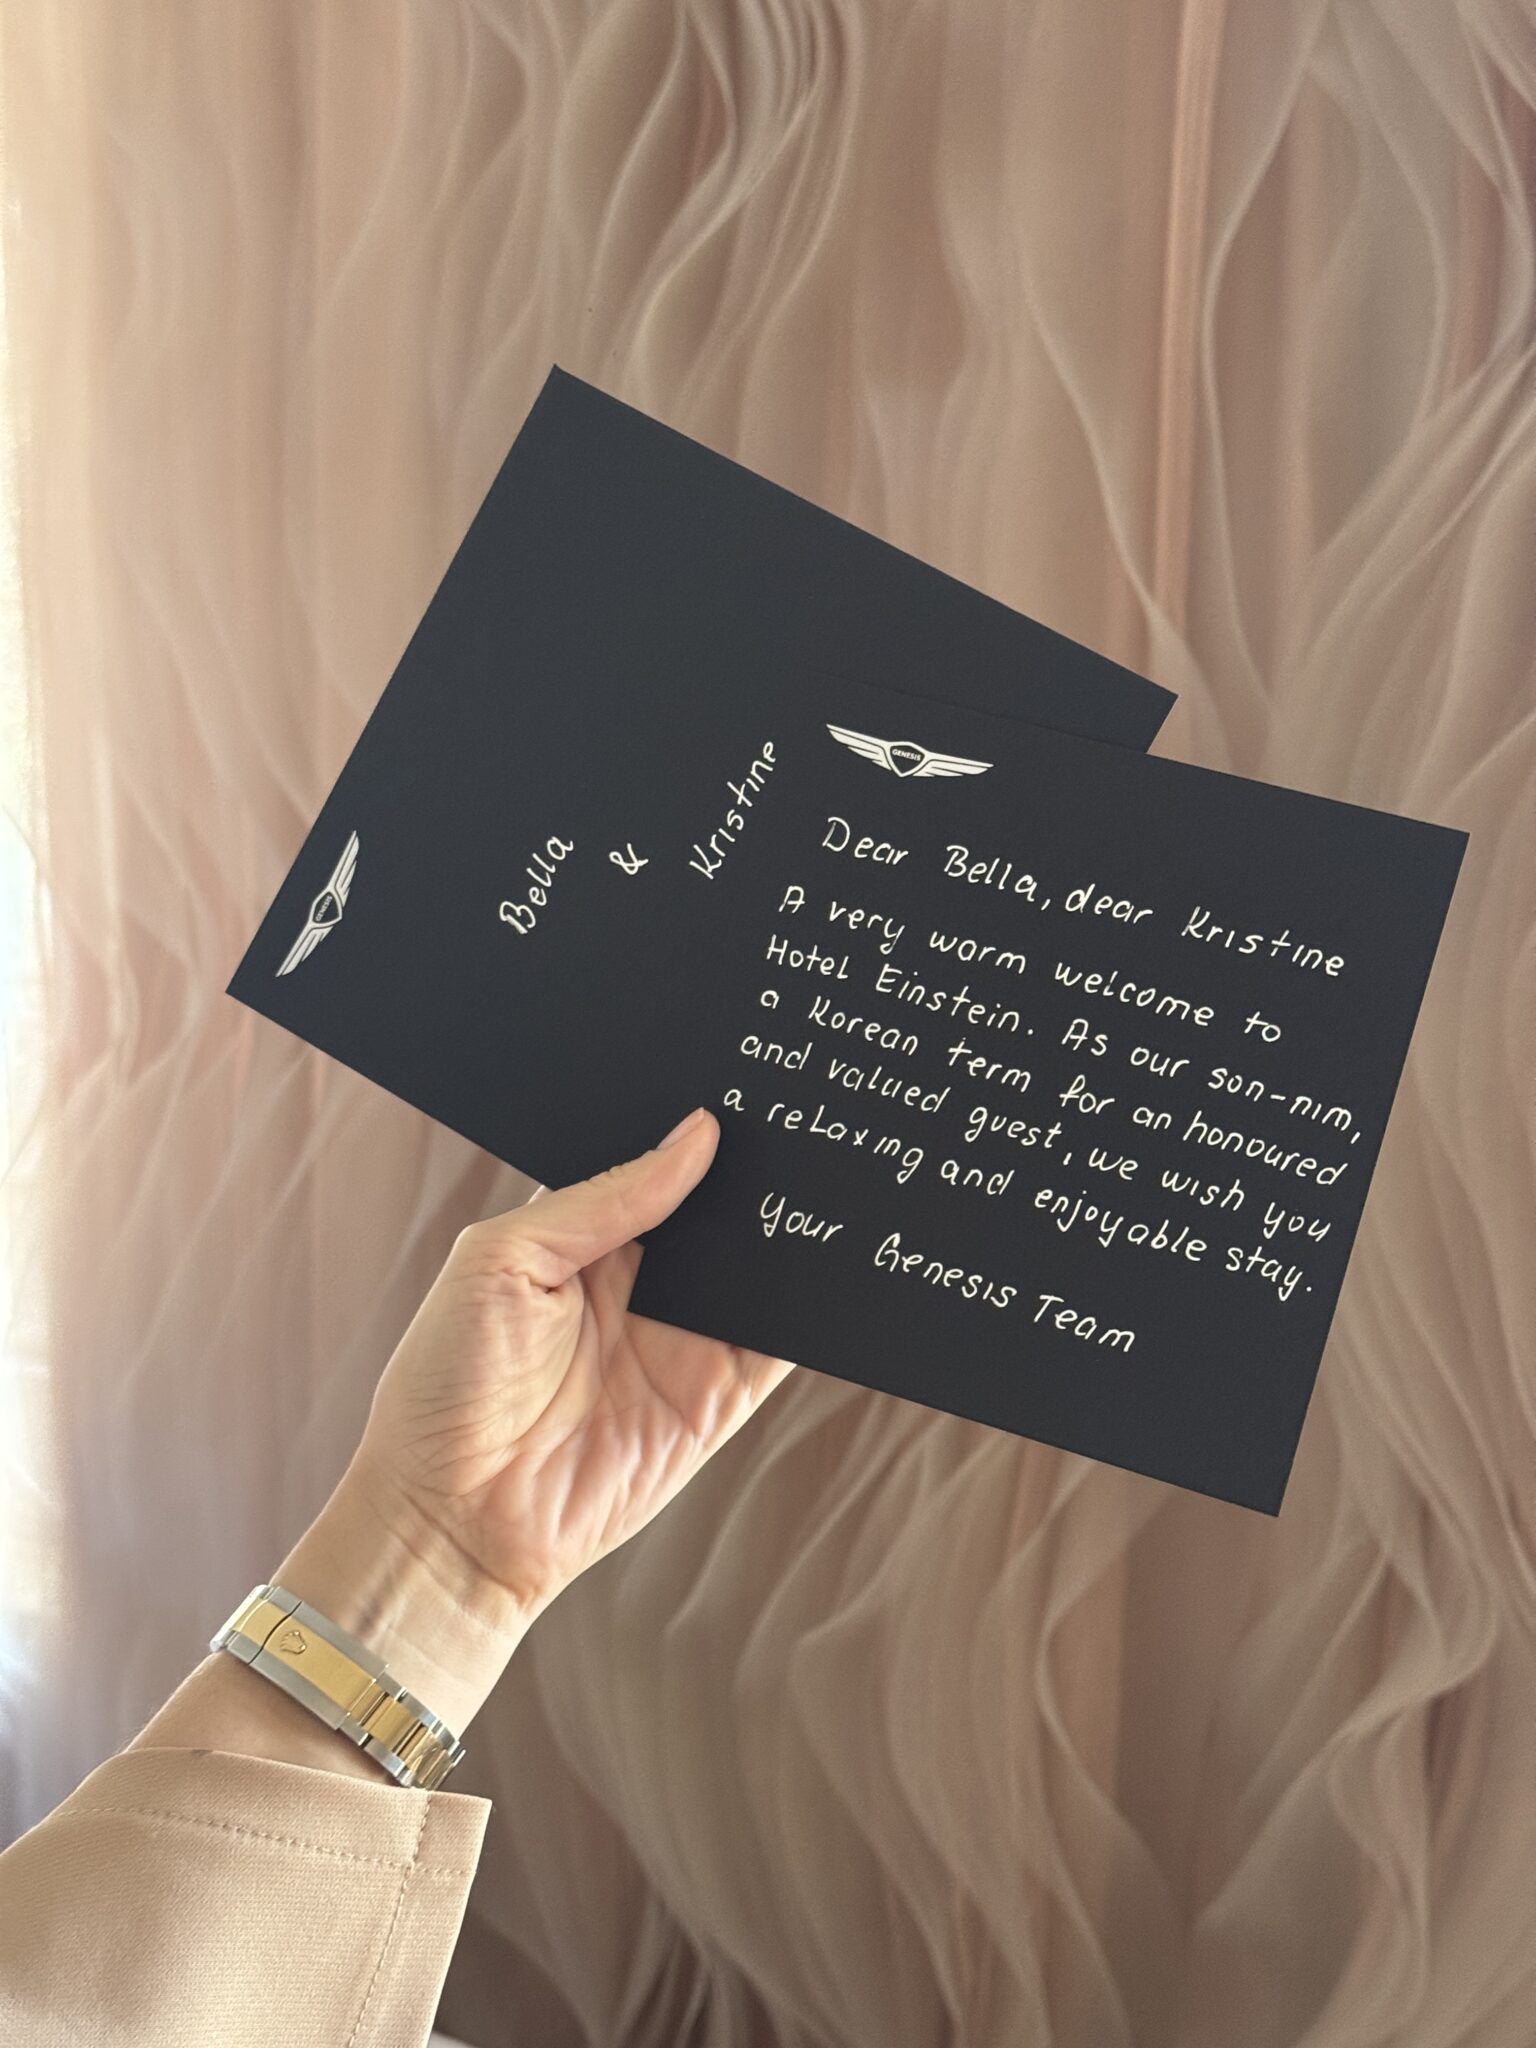 GENESIS
Bella
&
Kristine
GENESIS
Dear Bella, dear Kristine
A very warm welcome to
Hotel Einstein. As our son-nim,
a Korean term for an honoured
and valued guest, we wish you
a relaxing and enjoyable stay.
Your Genesis Team